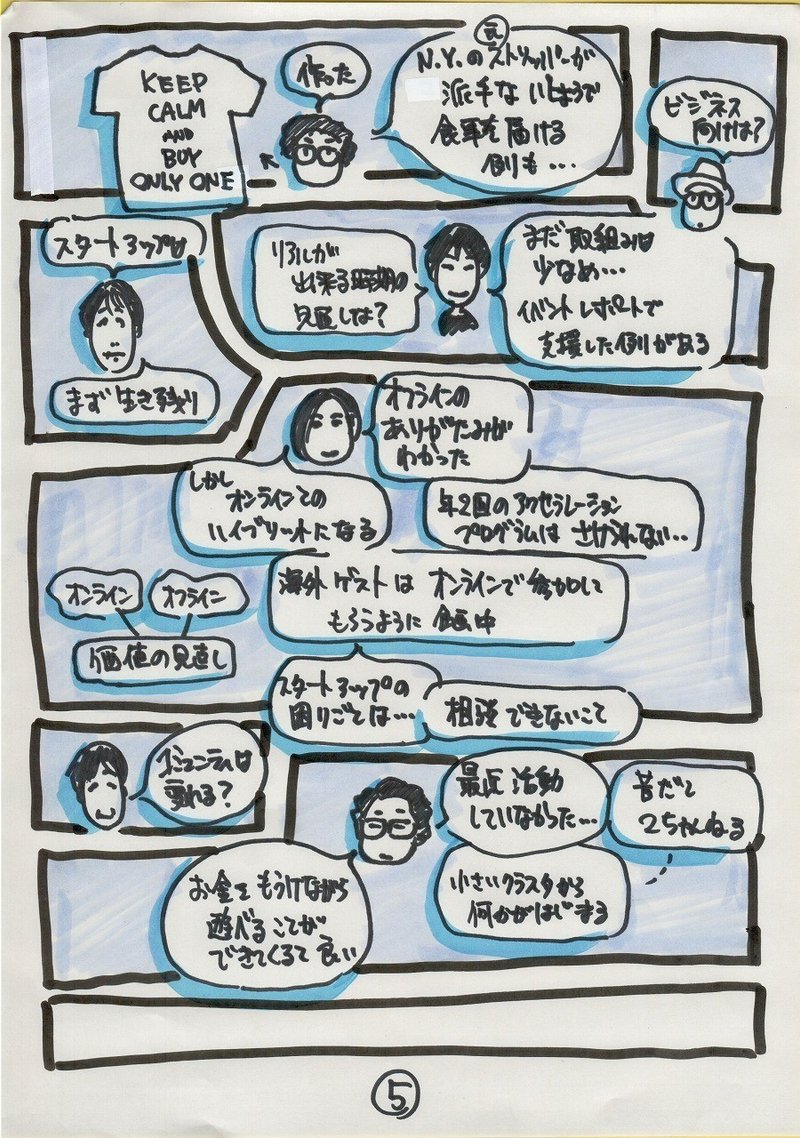 KEEP
CALM
AND
BUY
ONLY ONE
作った
元
N.Y.のストリッパーが
派手ないしょうで
食事を届ける
例も…
ビジネス
向けは?
スタートアップは
まず生き残り
リアルが
出来る時期の
見直しは?
まだ取組みは
少なめ…
イベントレポートで
支援した例がある
オフラインの
ありがたみが
わかった
しかし
オンラインとの
ハイブリットになる
年2回のアクセラレーション
プログラムは さけられない…
海外ゲストは オンラインで参加して
もらうように 企画中
オンライン
オフライン
価値の見直し
スタートアップの
困りごとは…
相談できないこと
コミュニティは
変れる?
最近活動
していなかった…
昔だと
2ちゃんねる
小さいクラスタから
何かがはじまる
お金をもうけながら
遊べることが
できてくるて良い
5